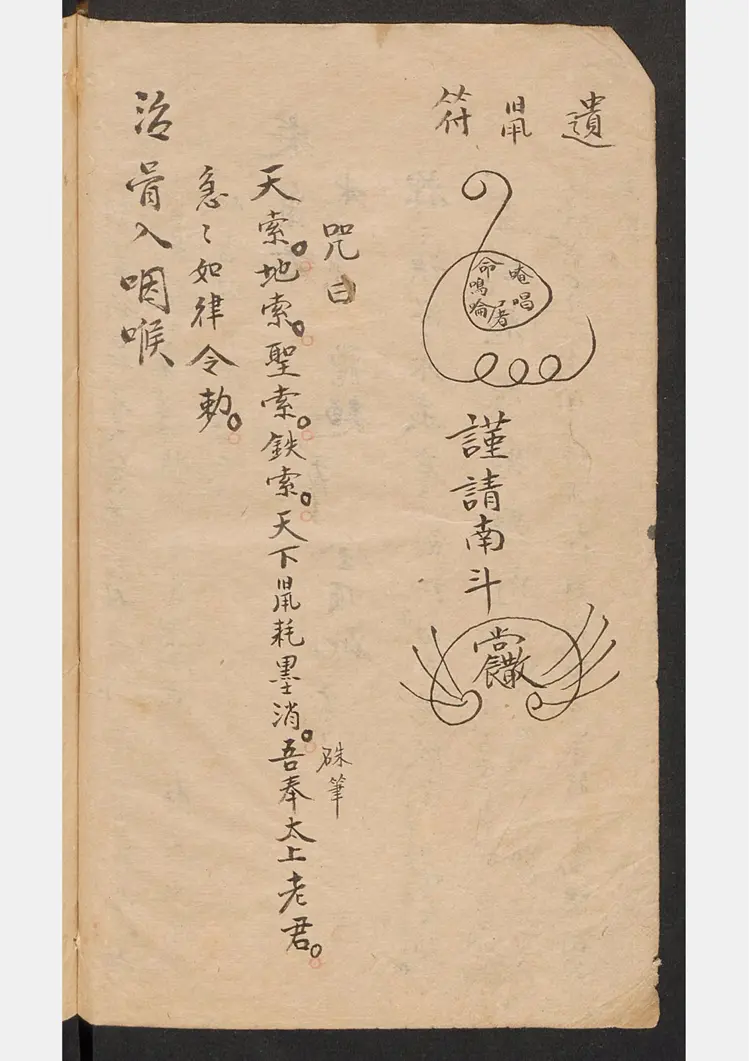 遺鼠符
唵唱
命鳴
謹請南斗
咒曰
硃筆
天索。地索。聖索。鉄索。天下鼠耗墨消。吾奉太上老君。
急〻如律令勅。
治骨入咽喉